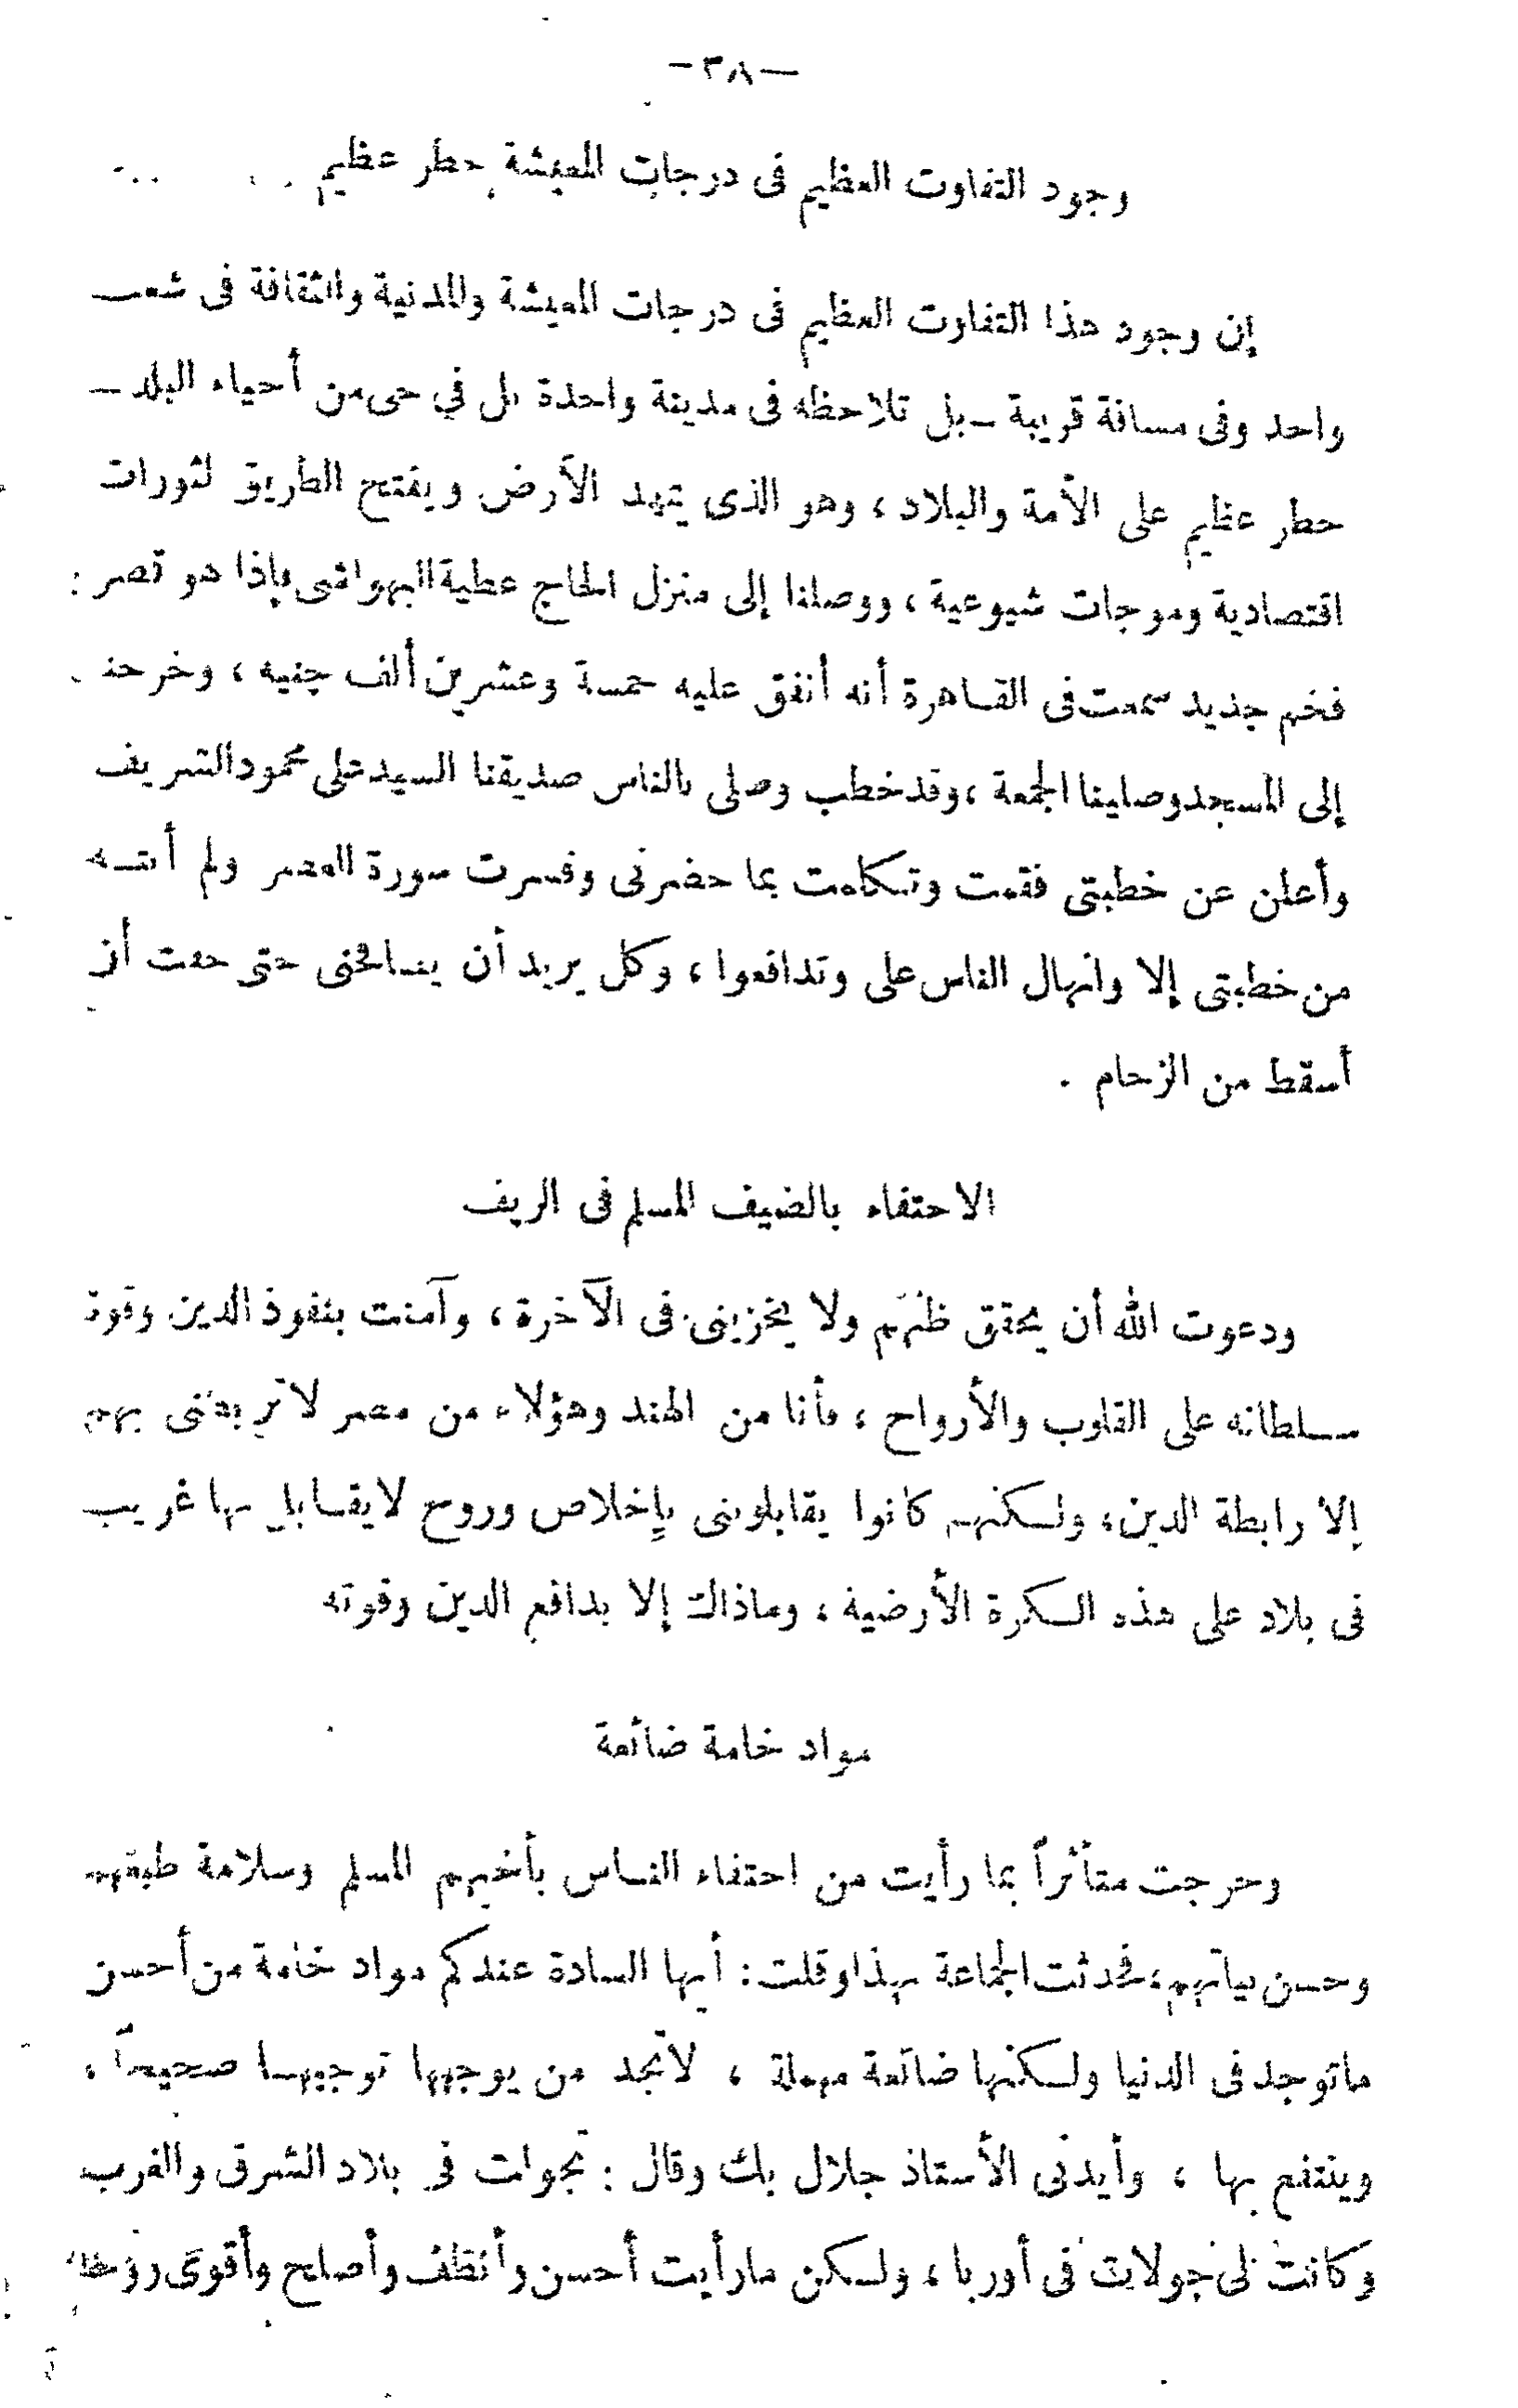 — ٣٨ —
وجود التفاوت العظيم فى درجات المعيشة خطر عظيم
إن وجود هذا التفاوت العظيم فى درجات المعيشة والمدنية والثقافة فى شعب
واحد وفى مسافة قريبة – بل تلاحظه فى مدينة واحدة بل في حى من أحياء البلد –
خطر عظيم على الأمة والبلاد ، وهو الذى يمهد الأرض ويفتح الطريق لثورات
اقتصادية وموجات شيوعية ، ووصلنا إلى منزل الحاج عطية البهواشى فإذا هو قصر
فخم جديد سمعت فى القاهرة أنه أنفق عليه خمسة وعشرين ألف جنيه ، وخرجنا
إلى المسجد وصلينا الجمعة ، وقد خطب وصلى بالناس صديقنا السيد على محمود الشريف
وأعلن عن خطبتى فقمت وتكلمت بما حضرنى وفسرت سورة العصر ولم أنته
من خطبتى إلا وانهال الناس على وتدافعوا ، وكل يريد أن يصافحنى حتى خفت أن
أسقط من الزحام .
الاحتفاء بالضيف المسلم فى الريف
ودعوت الله أن يحقق ظنهم ولا يخزينى فى الآخرة ، وآمنت بنفوذ الدين وقوة
سلطانه على القلوب والأرواح ، فأنا من الهند وهؤلاء من مصر لا تربطنى بهم
إلا رابطة الدين ، ولكنهم كانوا يقابلوننى بإخلاص وروح لا يقابل بها غريب
فى بلاد على هذه الكرة الأرضية ، وماذاك إلا بدافع الدين وقوته
مواد خامة ضائعة
وخرجت متأثراً بما رأيت من احتفاء الناس بأخيهم المسلم وسلامة طبقتهم
وحسن نياتهم ، فحدثت الجماعة بهذا وقلت : أيها السادة عندكم مواد خامة من أحسن
ماتوجد فى الدنيا ولكنها ضائعة مهملة ، لا تجد من يوجهها توجيها صحيحاً ،
وينتفع بها ، وأيدنى الأستاذ جلال بك وقال : تجولت فى بلاد الشرق والغرب
وكانت لى جولات فى أوربا ، ولكن مارأيت أحسن وأنظف وأصلح وأقوى روحا